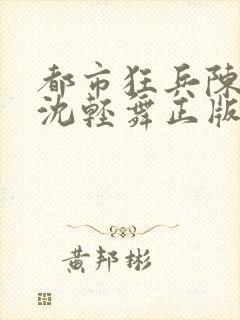 都市狂兵陳
沈輕舞正版
黄邦彬